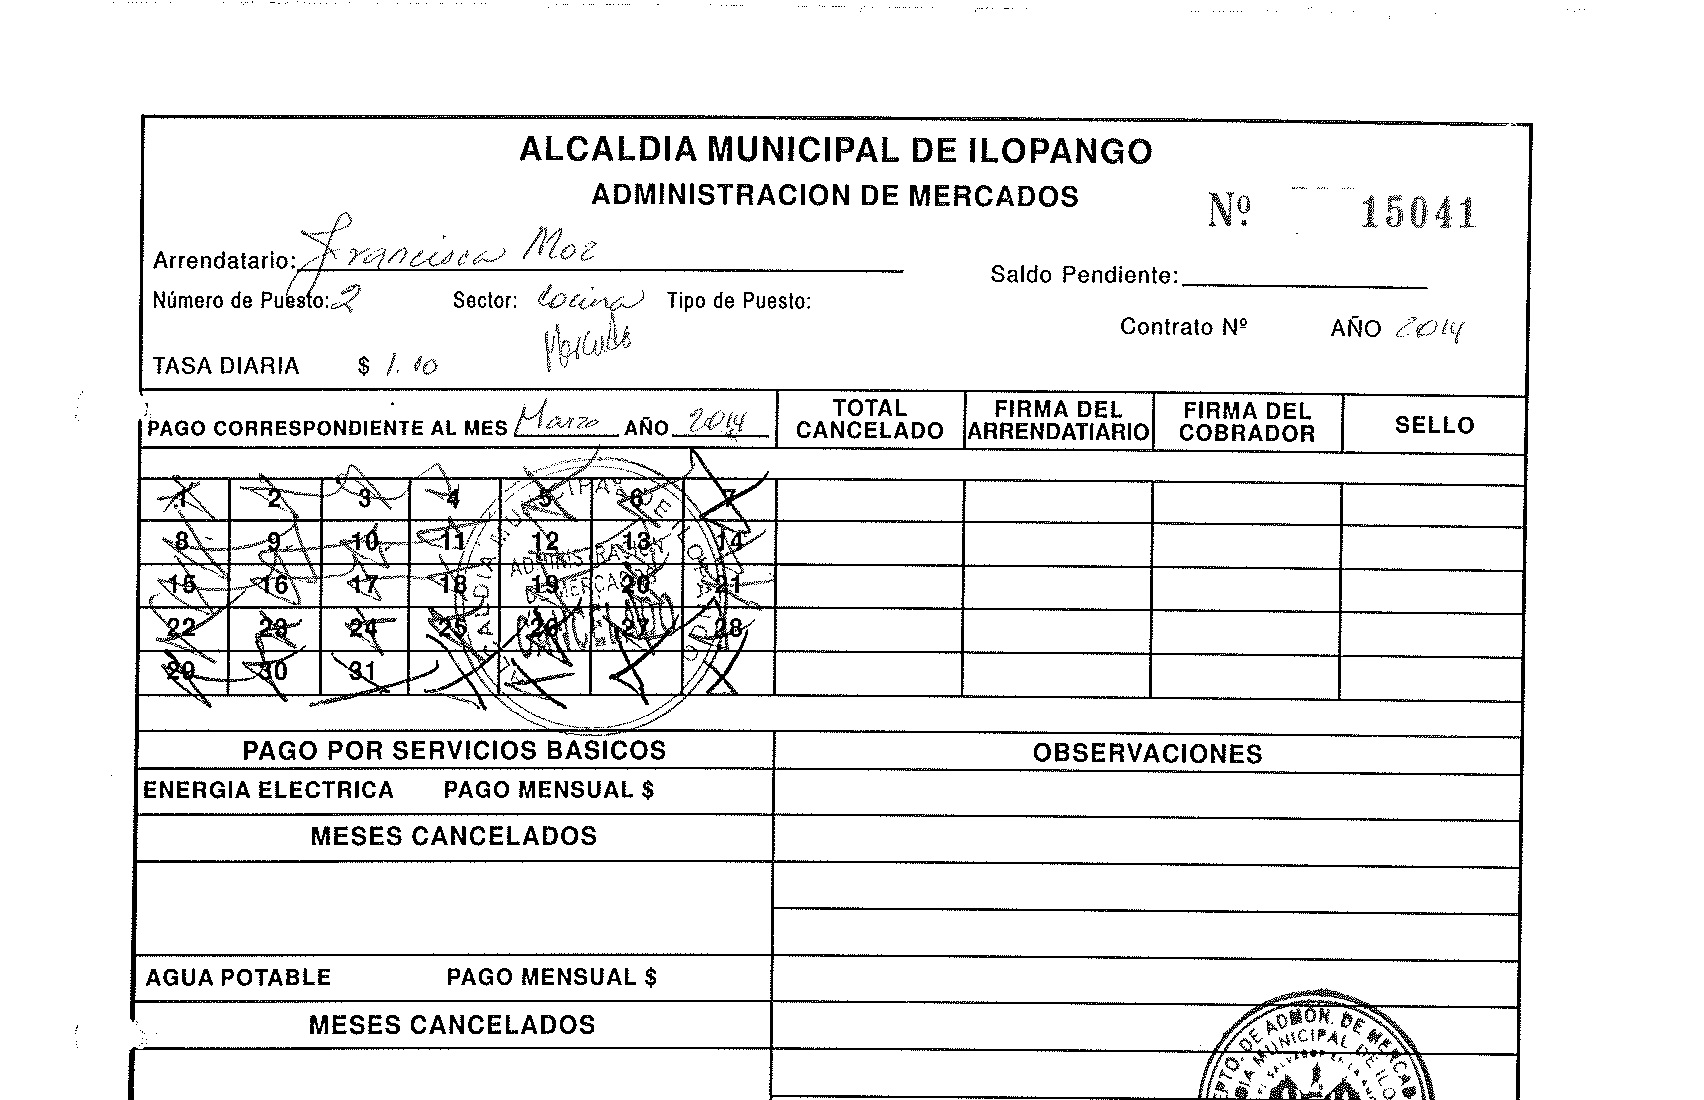 ALCALDIA MUNICIPAL DE ILOPANGO
ADMINISTRACION DE MERCADOS
Nº 15041
Arrendatario: Francisca Moz
Saldo Pendiente:
Número de Puesto: 2 Sector: Cocina Tipo de Puesto:
Mercado
Contrato Nº AÑO 2014
TASA DIARIA $ 1.10
PAGO CORRESPONDIENTE AL MES Marzo AÑO 2014
TOTAL CANCELADO
FIRMA DEL ARRENDATIARIO
FIRMA DEL COBRADOR
SELLO
1 2 3 4 5 6 7
8 9 10 11 12 13 14
15 16 17 18 19 20 21
22 23 24 25 26 27 28
29 30 31
ALCALDIA MUNICIPAL DE ILOPANGO
ADMINISTRACION
DE MERCADOS
CANCELADO
PAGO POR SERVICIOS BASICOS
OBSERVACIONES
ENERGIA ELECTRICA PAGO MENSUAL $
MESES CANCELADOS
AGUA POTABLE PAGO MENSUAL $
MESES CANCELADOS
DE ADMON. DE
MUNICIPAL DE